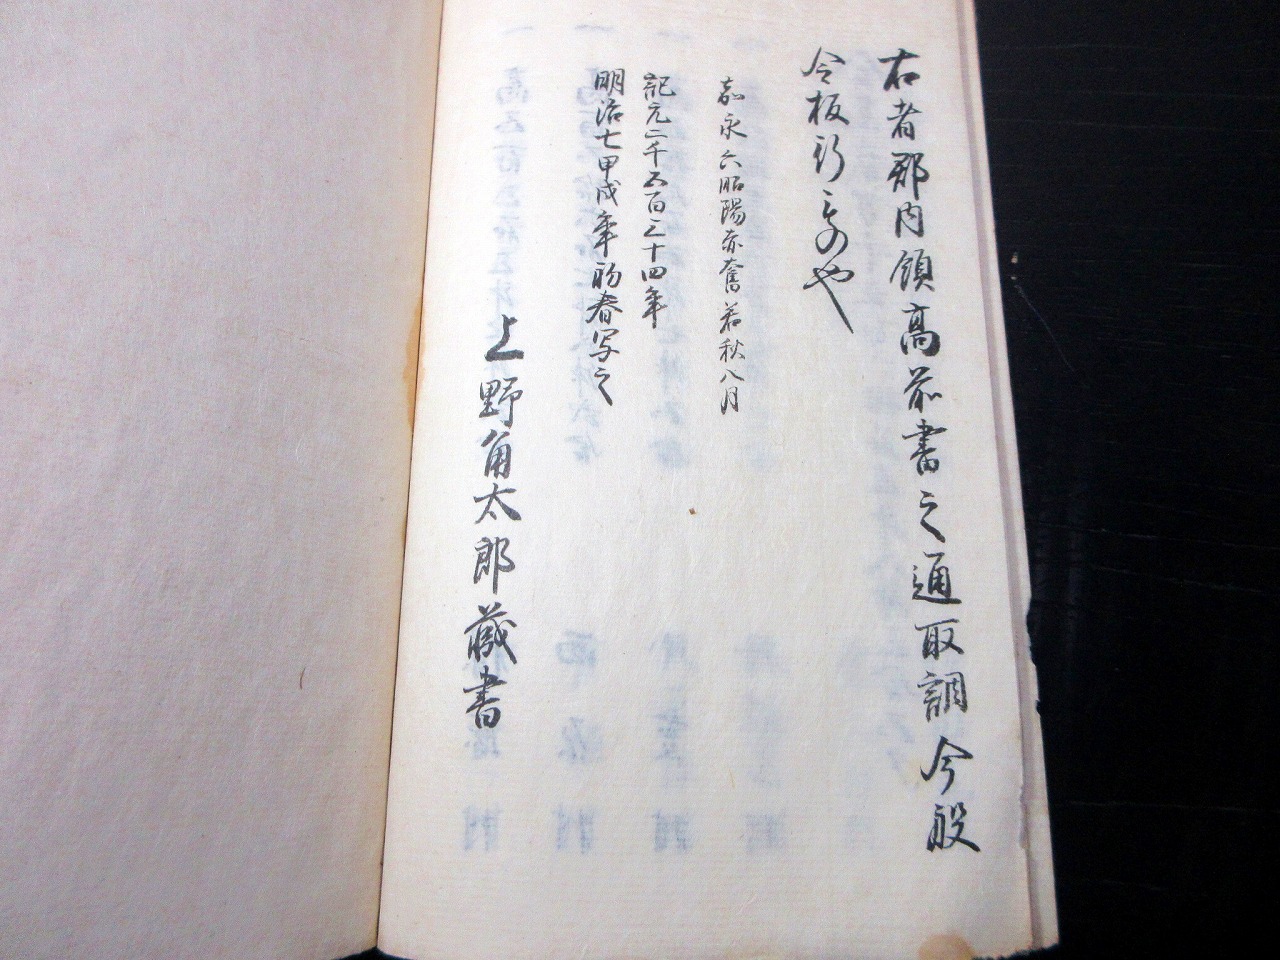 右者郡内領高前書之通取調今般
令板行もの也
嘉永六昭陽赤奮若秋八月
記元二千五百三十四年
明治七甲戌年初春写之
上野角太郎蔵書